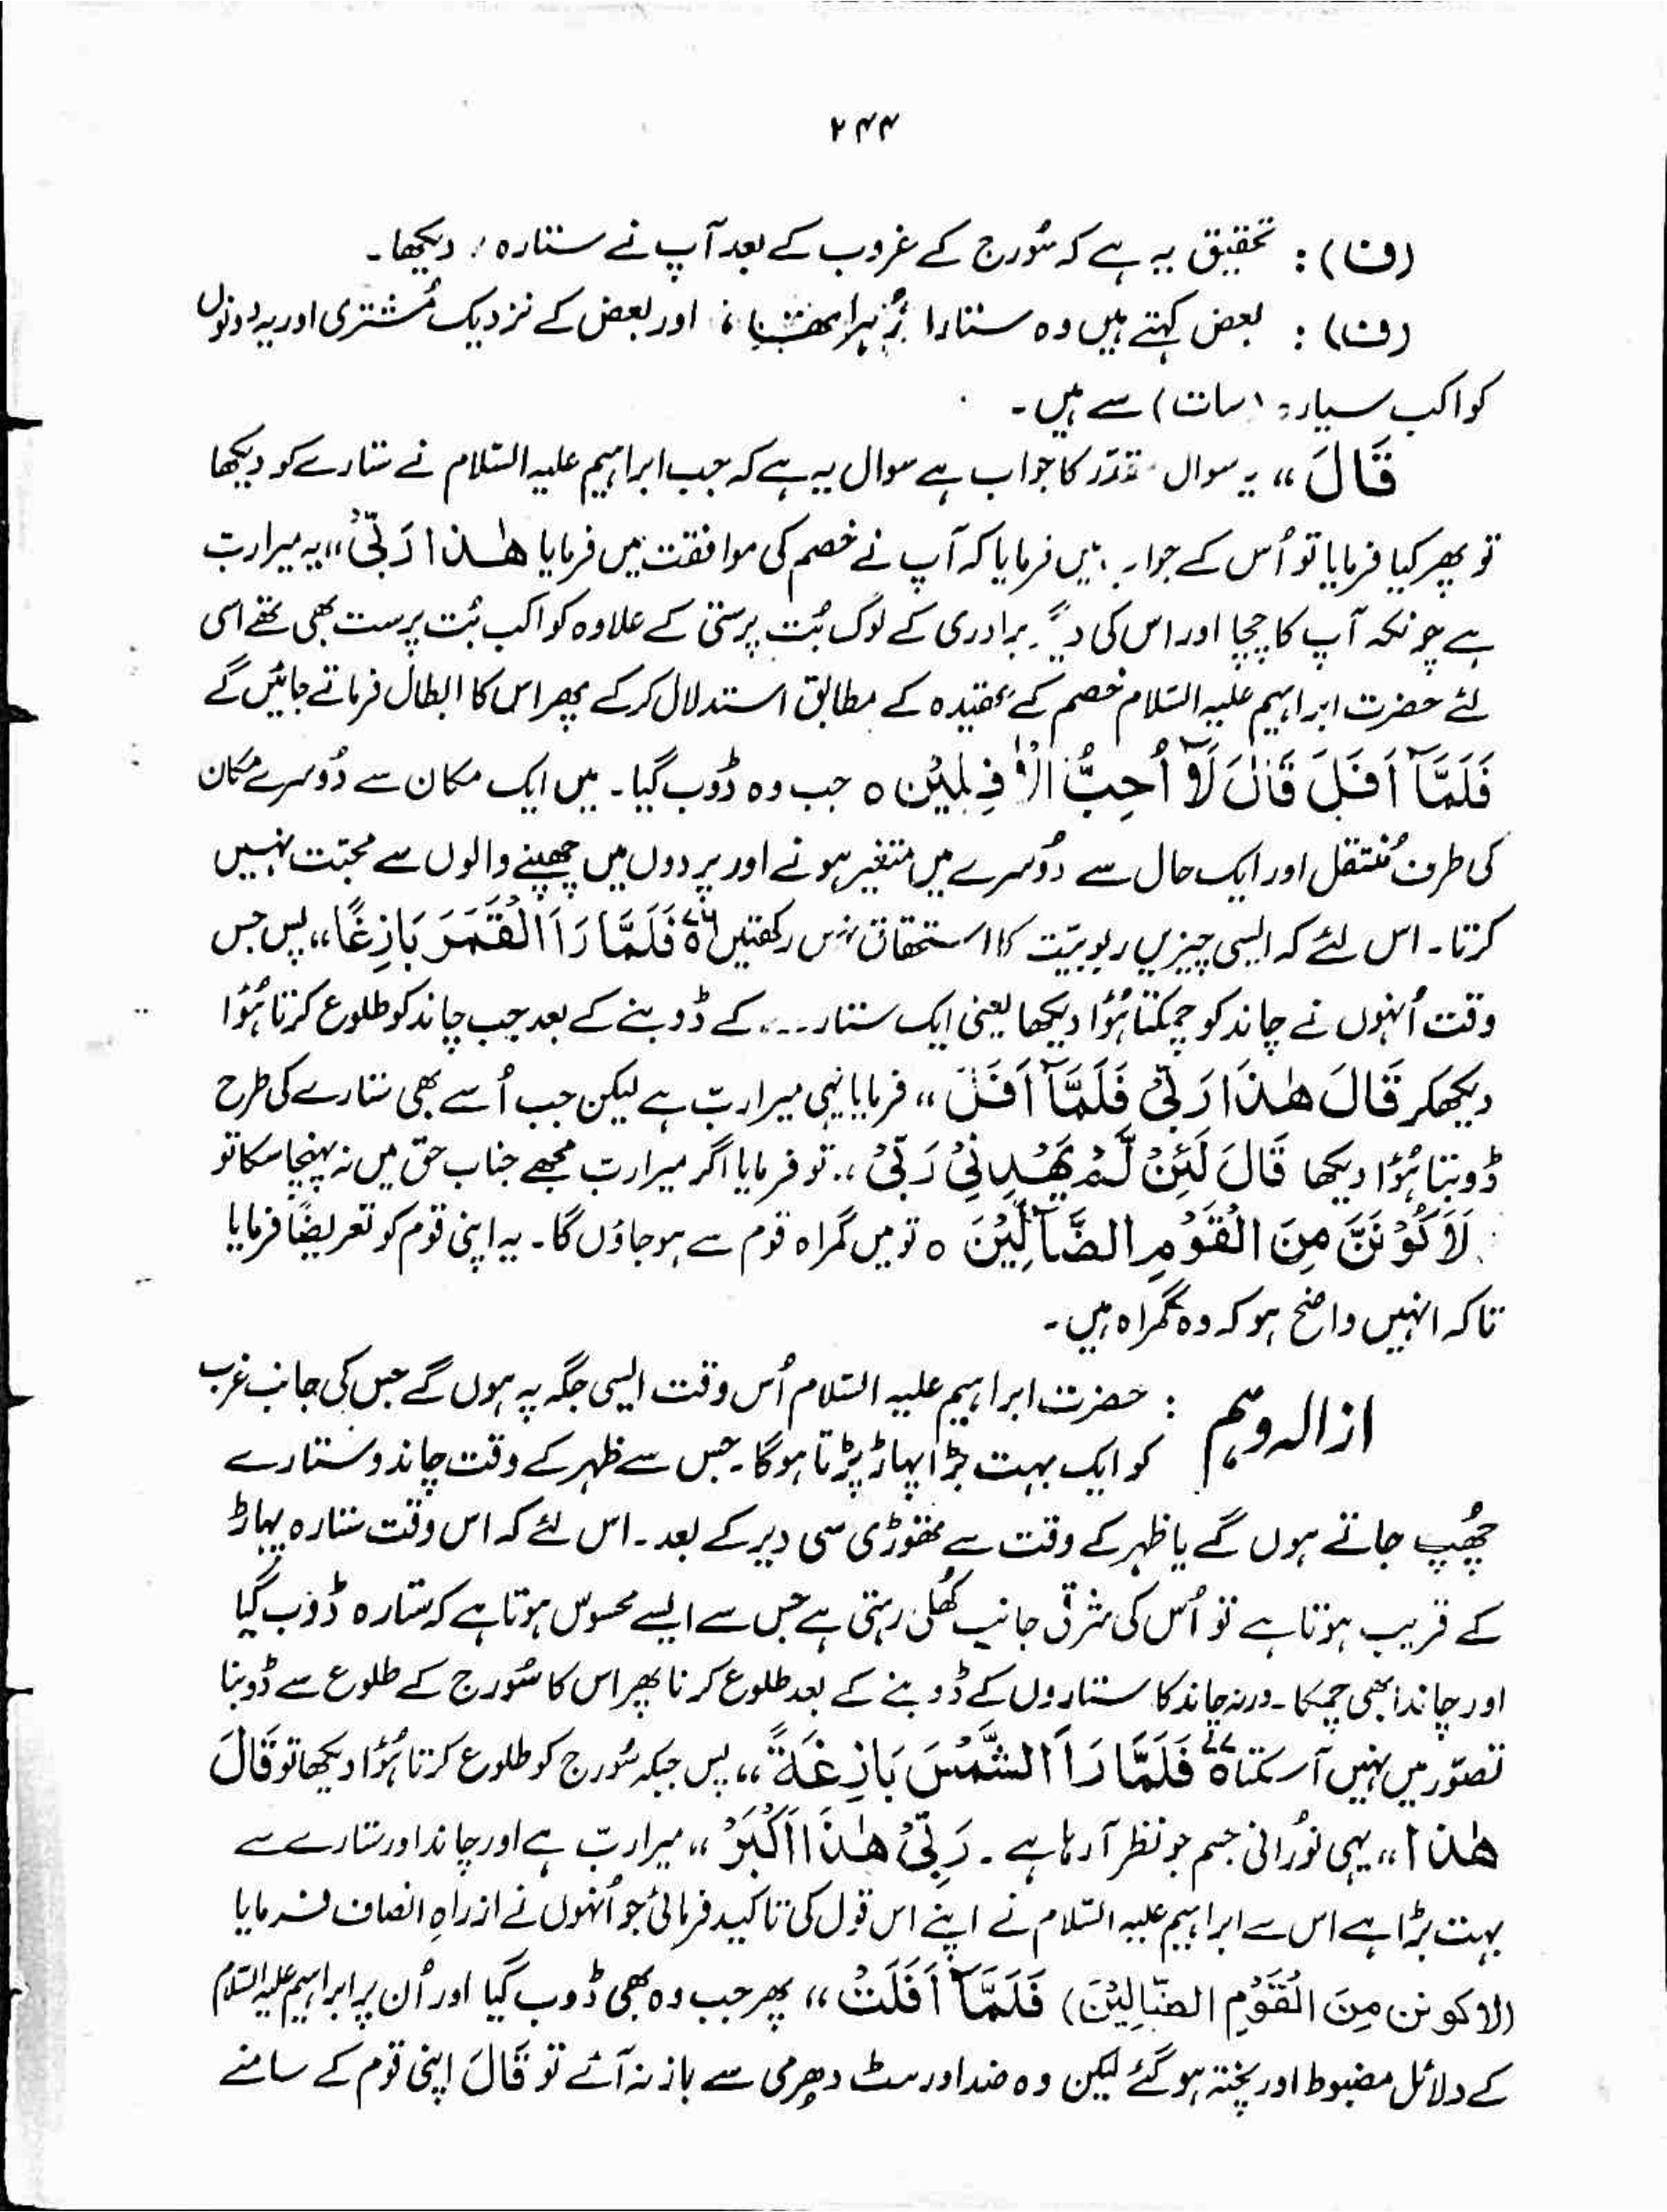 ۲۴۴
(ف) : تحقیق یہ ہے کہ سُورج کے غروب کے بعد آپ نے ستارہ دیکھا۔
(ف) : بعض کہتے ہیں وہ ستارا زُہرا تھا اور بعض کے نزدیک مُشتری اور یہ دونوں
کواکب سیارہ (سات) سے ہیں۔
قَالَ ،، یہ سوال مقدّر کا جواب ہے سوال یہ ہے کہ جب ابراہیم علیہ السّلام نے ستارے کو دیکھا
تو پھر کیا فرمایا تو اُس کے جواب میں فرمایا کہ آپ نے خصم کی موافقت میں فرمایا ھٰذَا رَبِّیْ ،، یہ میرا ربّ
ہے چونکہ آپ کا چچا اور اس کی برادری کے لوگ بُت پرستی کے علاوہ کواکب بُت پرست بھی تھے اسی
لئے حضرت ابراہیم علیہ السّلام خصم کے عقیدہ کے مطابق استدلال کر کے پھر اس کا ابطال فرماتے جائیں گے
فَلَمَّآ اَفَلَ قَالَ لَآ اُحِبُّ الْاٰفِلِیْنَ ہ جب وہ ڈُوب گیا۔ میں ایک مکان سے دُوسرے مکان
کی طرف مُنتقل اور ایک حال سے دُوسرے میں متغیر ہونے اور پردوں میں چھپنے والوں سے محبّت نہیں
کرتا۔ اس لئے کہ ایسی چیزیں ربوبیّت کا استحقاق نہیں رکھتیں ۷۶ فَلَمَّا رَاَ الْقَمَرَ بَازِغًا ،، پس جس
وقت اُنہوں نے چاند کو چمکتا ہُوا دیکھا یعنی ایک ستارے کے ڈوبنے کے بعد جب چاند کو طلوع کرتا ہُوا
دیکھکر قَالَ ھٰذَا رَبِّیْ فَلَمَّآ اَفَلَ ،، فرمایا یہی میرا ربّ ہے لیکن جب اُسے بھی ستارے کی طرح
ڈوبتا ہُوا دیکھا قَالَ لَئِنْ لَّمْ یَھْدِنِیْ رَبِّیْ ،، تو فرمایا اگر میرا ربّ مجھے جناب حق میں نہ پہنچا سکا تو
لَاَکُوْنَنَّ مِنَ الْقَوْمِ الضَّآلِّیْنَ ہ تو میں گمراہ قوم سے ہو جاؤں گا۔ یہ اپنی قوم کو تعریضًا فرمایا
تاکہ انہیں واضح ہو کہ وہ گمراہ ہیں۔
ازالہ وہم : حضرت ابراہیم علیہ السّلام اُس وقت ایسی جگہ پہ ہوں گے جس کی جانب غرب
کو ایک بہت بڑا پہاڑ پڑتا ہوگا۔ جس سے ظہر کے وقت چاند و ستارے
چھُپ جاتے ہوں گے یا ظہر کے وقت سے تھوڑی سی دیر کے بعد۔ اس لئے کہ اس وقت ستارہ پہاڑ
کے قریب ہوتا ہے تو اُس کی مشرقی جانب کُھلی رہتی ہے جس سے ایسے محسوس ہوتا ہے کہ ستارہ ڈوب گیا
اور چاند ابھی چمکا۔ ورنہ چاند کا ستاروں کے ڈوبنے کے بعد طلوع کرنا پھر اس کا سُورج کے طلوع سے ڈوبنا
تصوّر میں نہیں آ سکتا ۷۷ فَلَمَّا رَاَ الشَّمْسَ بَازِغَةً ،، پس جبکہ سُورج کو طلوع کرتا ہُوا دیکھا تو قَالَ
ھٰذَا ،، یہی نُورانی جسم جو نظر آ رہا ہے۔ رَبِّیْ ھٰذَا اَکْبَرُ ،، میرا ربّ ہے اور چاند اور ستارے سے
بہت بڑا ہے اس سے ابراہیم علیہ السّلام نے اپنے اس قول کی تاکید فرمائی جو اُنہوں نے از راہِ انصاف فرمایا
(لاکونن مِنَ الْقَوْمِ الضَّالِیْنَ) فَلَمَّآ اَفَلَتْ ،، پھر جب وہ بھی ڈوب گیا اور اُن پر ابراہیم علیہ السّلام
کے دلائل مضبوط اور پختہ ہو گئے لیکن وہ ضد اور ہٹ دھرمی سے باز نہ آئے تو قَالَ اپنی قوم کے سامنے